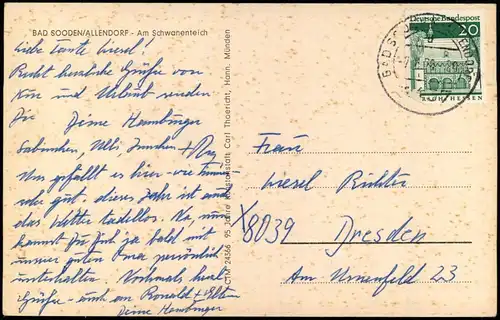 BAD SOODEN/ALLENDORF - Am Schwanenteich
Liebe Tante Wesel!
Recht herzliche Grüße von
Kur und Urlaub senden
Dir Deine Hamburger
Sabinchen, Ulli,
Uns gefällt es hier wie immer
sehr gut, dieses Jahr ist auch
das Wetter tadellos. Na, nun
kannst Du Dich ja bald mit
unserer guten Oma persönlich
unterhalten. Nochmals herzl.
Grüße auch an Ronald + Eltern
Deine Hamburger
CTM 24366 95 Jahre Kunstanstalt Carl Thoericht, Hann. Münden
Deutsche Bundespost
20
LORSCH/HESSEN
BAD SOODEN-ALLENDORF
Frau
Wesel Richter
X8039 Dresden
Am Urnenfeld 23